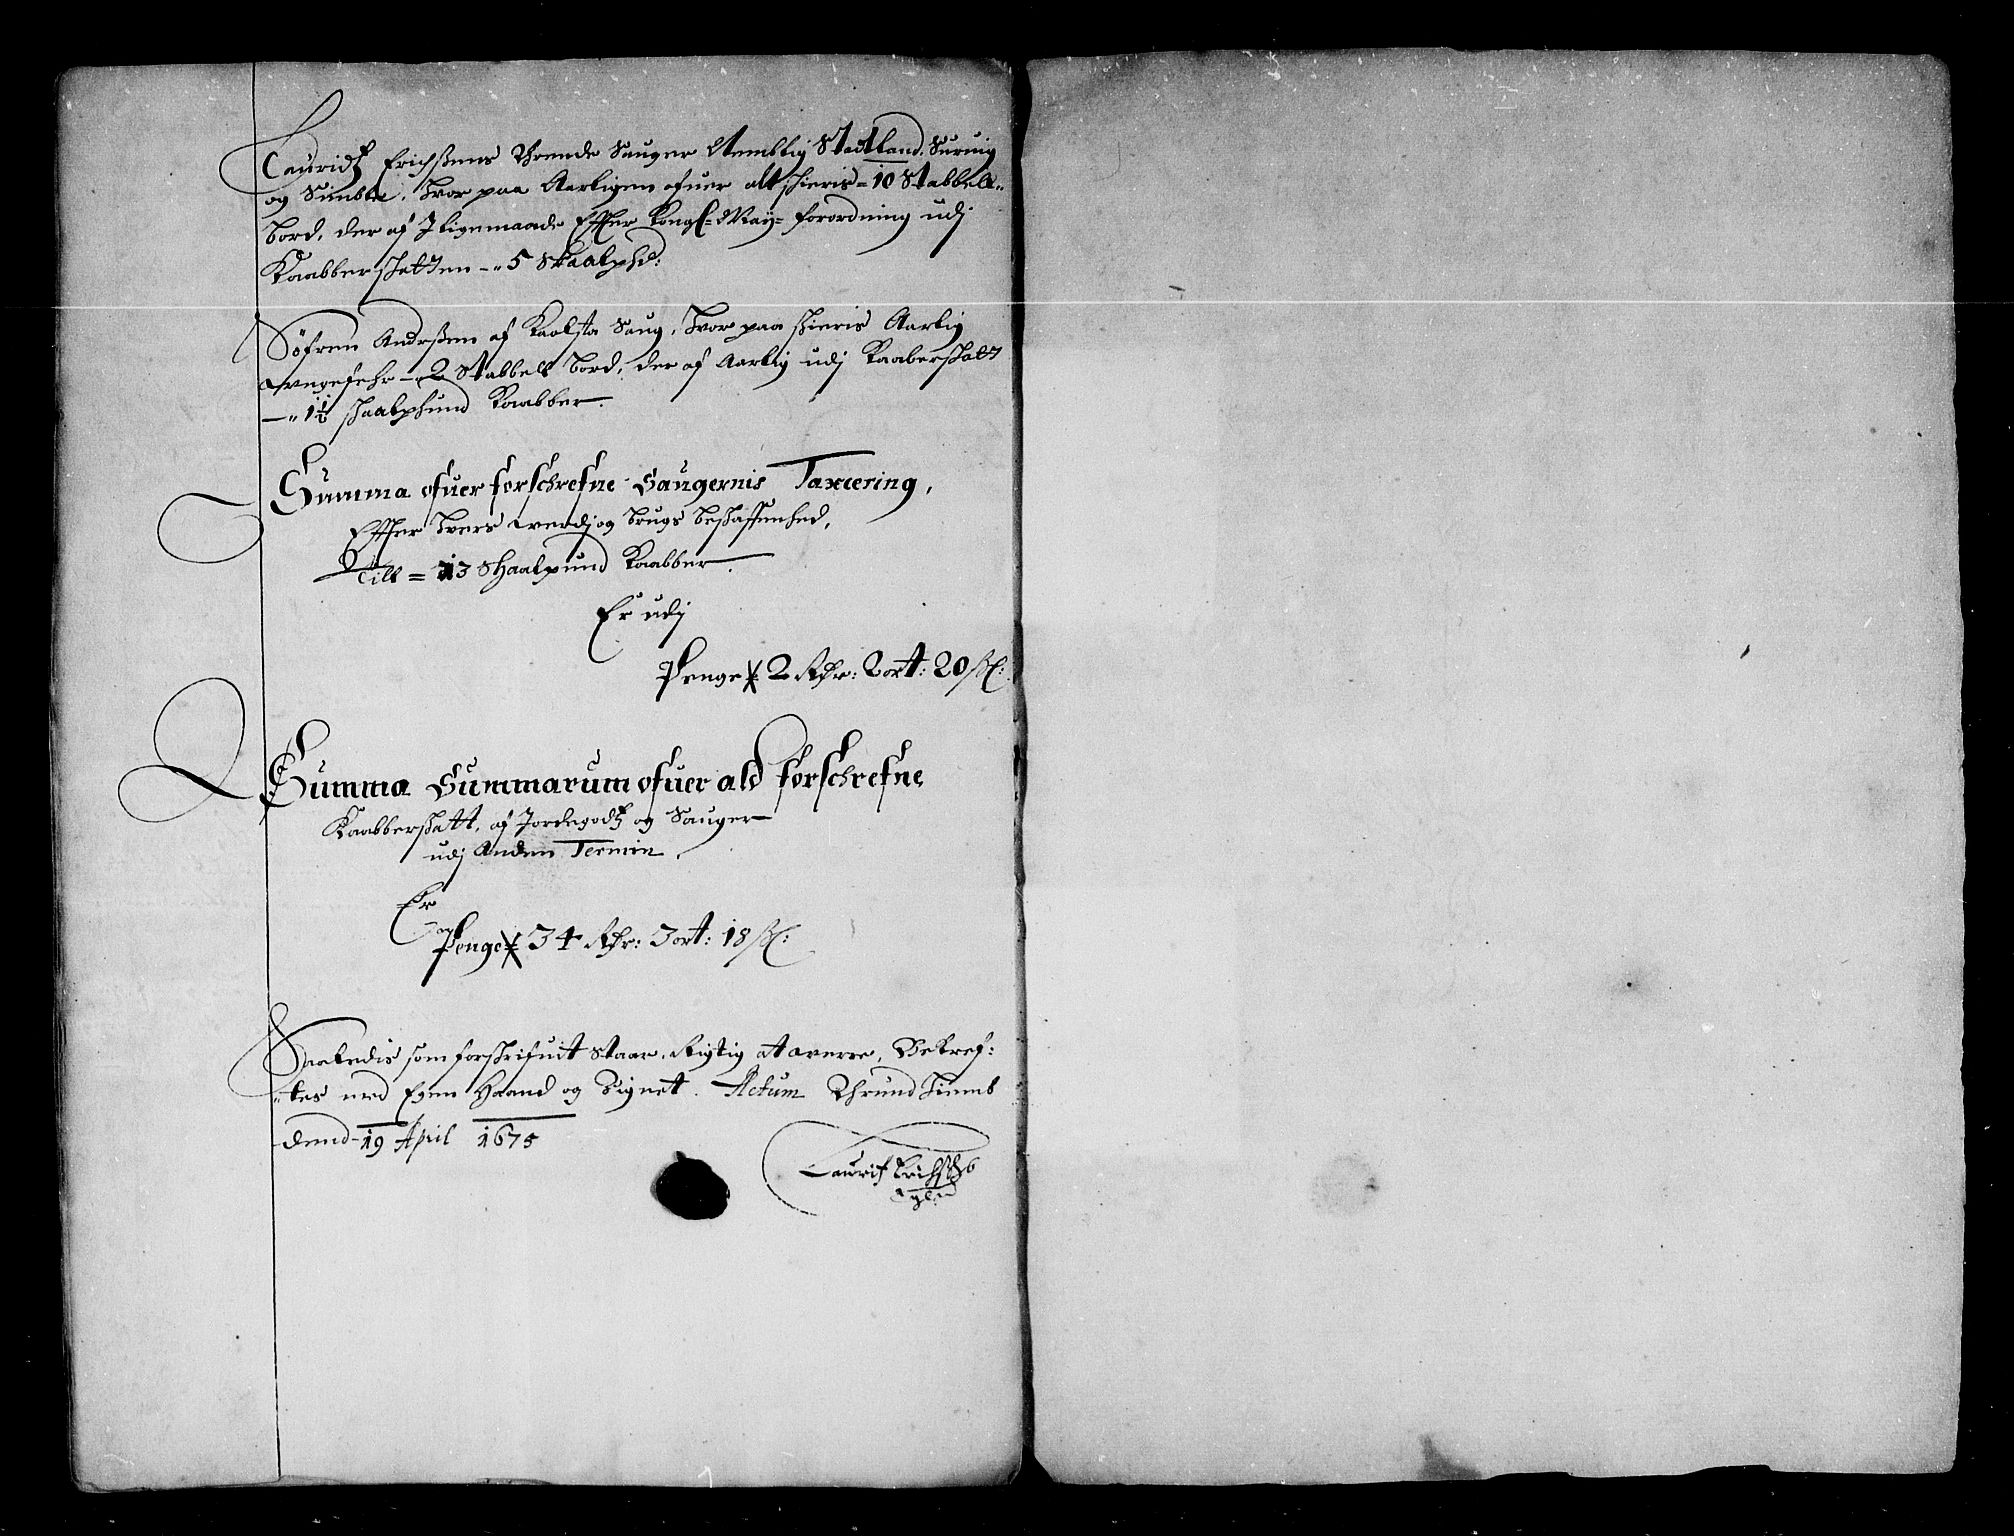 Lauridtz Erichsens Thrende Sauger Nemblig Stadtland, Suruig
og Simble, Hvor paa Aarligen ofuer alt skieris = 10 Stabbell
bord, der af J ligemaade Effter Kongl: May: forordning udj
Kaabber skatten -" 5 Skaalpd:
Søfren Andersen af Kaalsta Saug, Hvor paa skieris Aarlig
ungefehr -" 2 Stabbell bord, der af Aarlig udj Kaaberskatt
-" 1½ skaalphund Kaabber.
Summa ofuer forschrefne Saugernis Taxcering,
Effter hvers werdj og brugs beskaffenhed,
Till = 13 Skaalpund Kaabber.
Er udj
Penge 2 Rdr: 2 ort: 20 sk:
Summa Summarum ofuer ald forschrefne
Kaabberskatt, af Jordegodtz og Sauger
udj Anden Termin,
Er
Penge 34 Rdr: 3 ort: 18 sk:
Saaledis som forskrifuit staar, Rigtig at werre, Bekref:
"tes med Egen Haand og Signet. Actum Thrundhiemb
dend 19 April 1675
Laurits Erichs